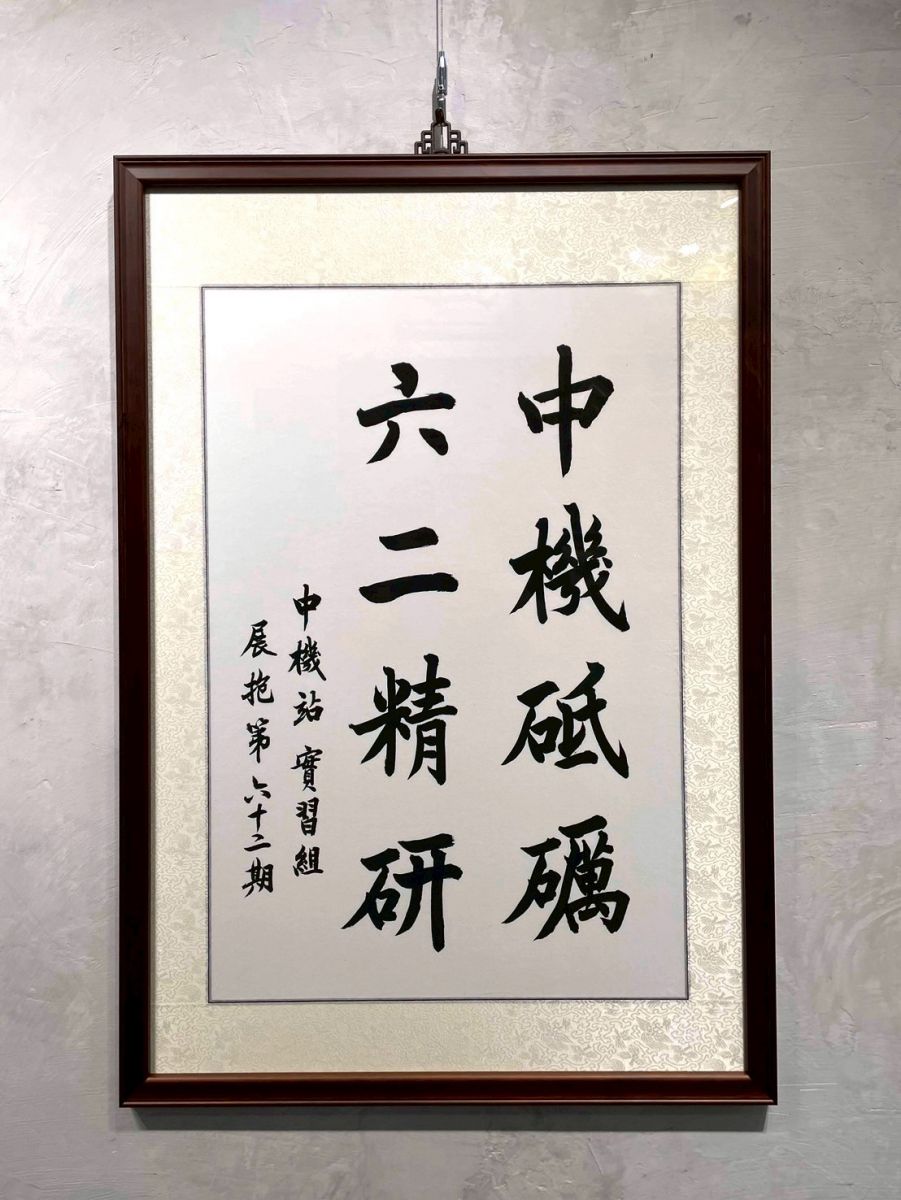 中機砥礪
六二精研
中機站實習組
展抱第六十二期